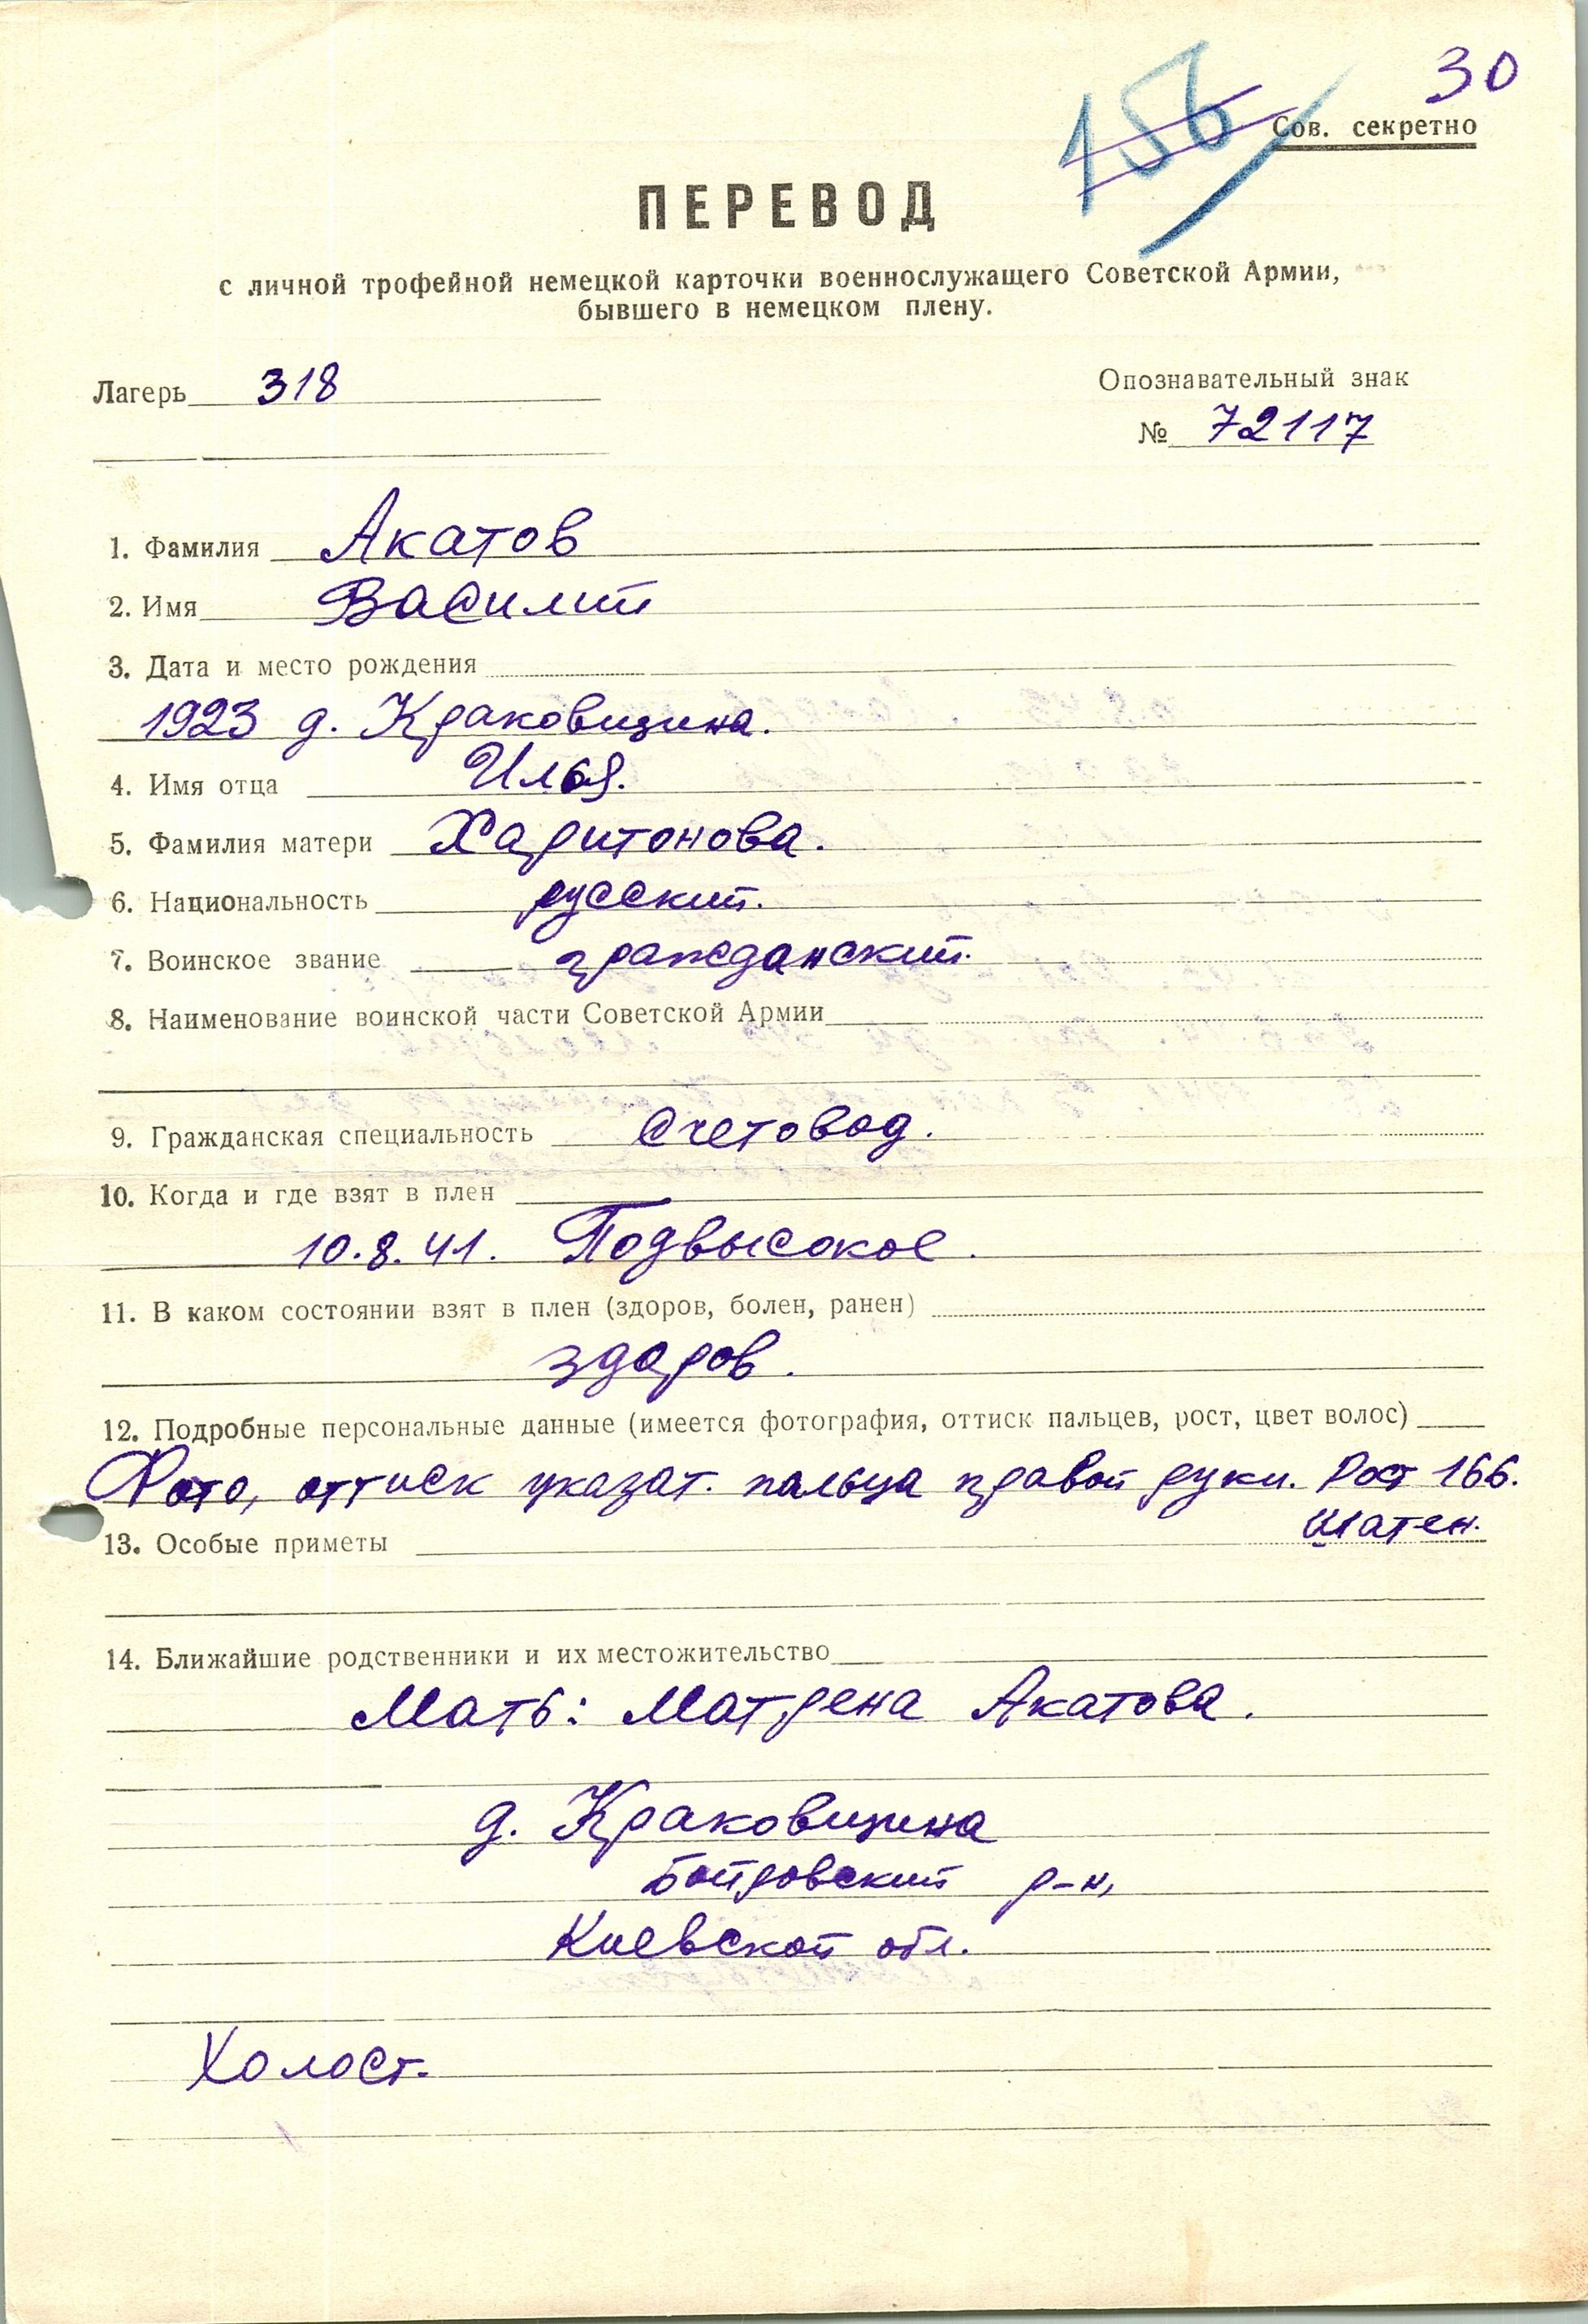 30
156
Сов. секретно
ПЕРЕВОД
с личной трофейной немецкой карточки военнослужащего Советской Армии,
бывшего в немецком плену.
Лагерь 318
Опознавательный знак
№ 72117
1. Фамилия Акатов
2. Имя Василий
3. Дата и место рождения
1923 д. Краковщина.
4. Имя отца Илья.
5. Фамилия матери Харитонова.
6. Национальность русский.
7. Воинское звание гражданский.
8. Наименование воинской части Советской Армии
9. Гражданская специальность Счетовод.
10. Когда и где взят в плен
10.8.41. Подвысокое.
11. В каком состоянии взят в плен (здоров, болен, ранен)
здоров.
12. Подробные персональные данные (имеется фотография, оттиск пальцев, рост, цвет волос)
Фото, оттиск указат. пальца правой руки. Рост 166.
Шатен.
13. Особые приметы
14. Ближайшие родственники и их местожительство
Мать: Матрена Акатова.
д. Краковщина
р-н,
Киевской обл.
Холост.